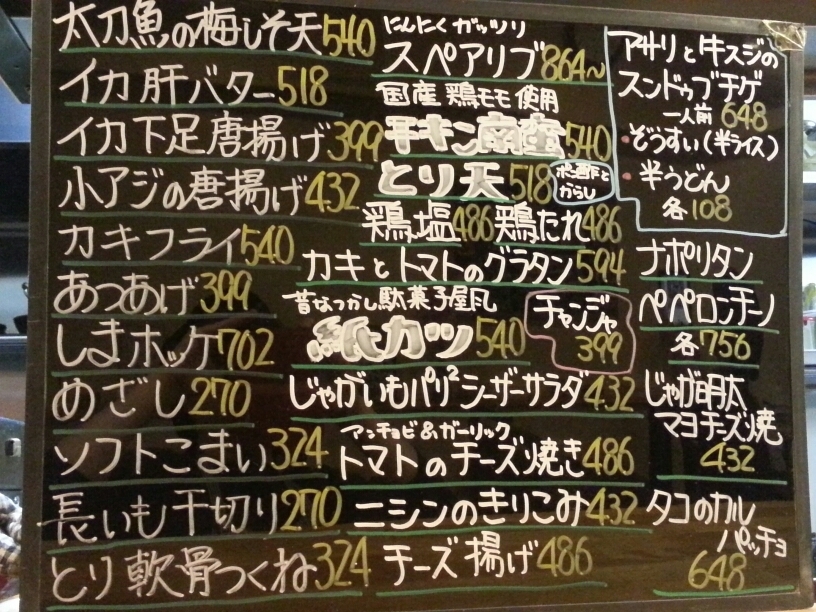 太刀魚の梅しそ天540
イカ肝バター518
イカ下足唐揚げ399
小アジの唐揚げ432
カキフライ540
あつあげ399
しまホッケ702
めざし270
ソフトこまい324
長いも千切り270
とり軟骨つくね324
にんにくガッツリ
スペアリブ864〜
国産鶏モモ使用
チキン南蛮540
とり天518
ポン酢と
からし
鶏塩486 鶏たれ486
カキとトマトのグラタン594
昔なつかし駄菓子屋風
紙カツ540
チャンジャ
399
じゃがいもパリ²シーザーサラダ432
アンチョビ&ガーリック
トマトのチーズ焼き486
ニシンのきりこみ432
チーズ揚げ486
アサリと牛スジの
スンドゥブチゲ
一人前 648
・ぞうすい(半ライス)
・半うどん
各108
ナポリタン
ペペロンチーノ
各756
じゃが明太
マヨチーズ焼
432
タコのカル
パッチョ
648